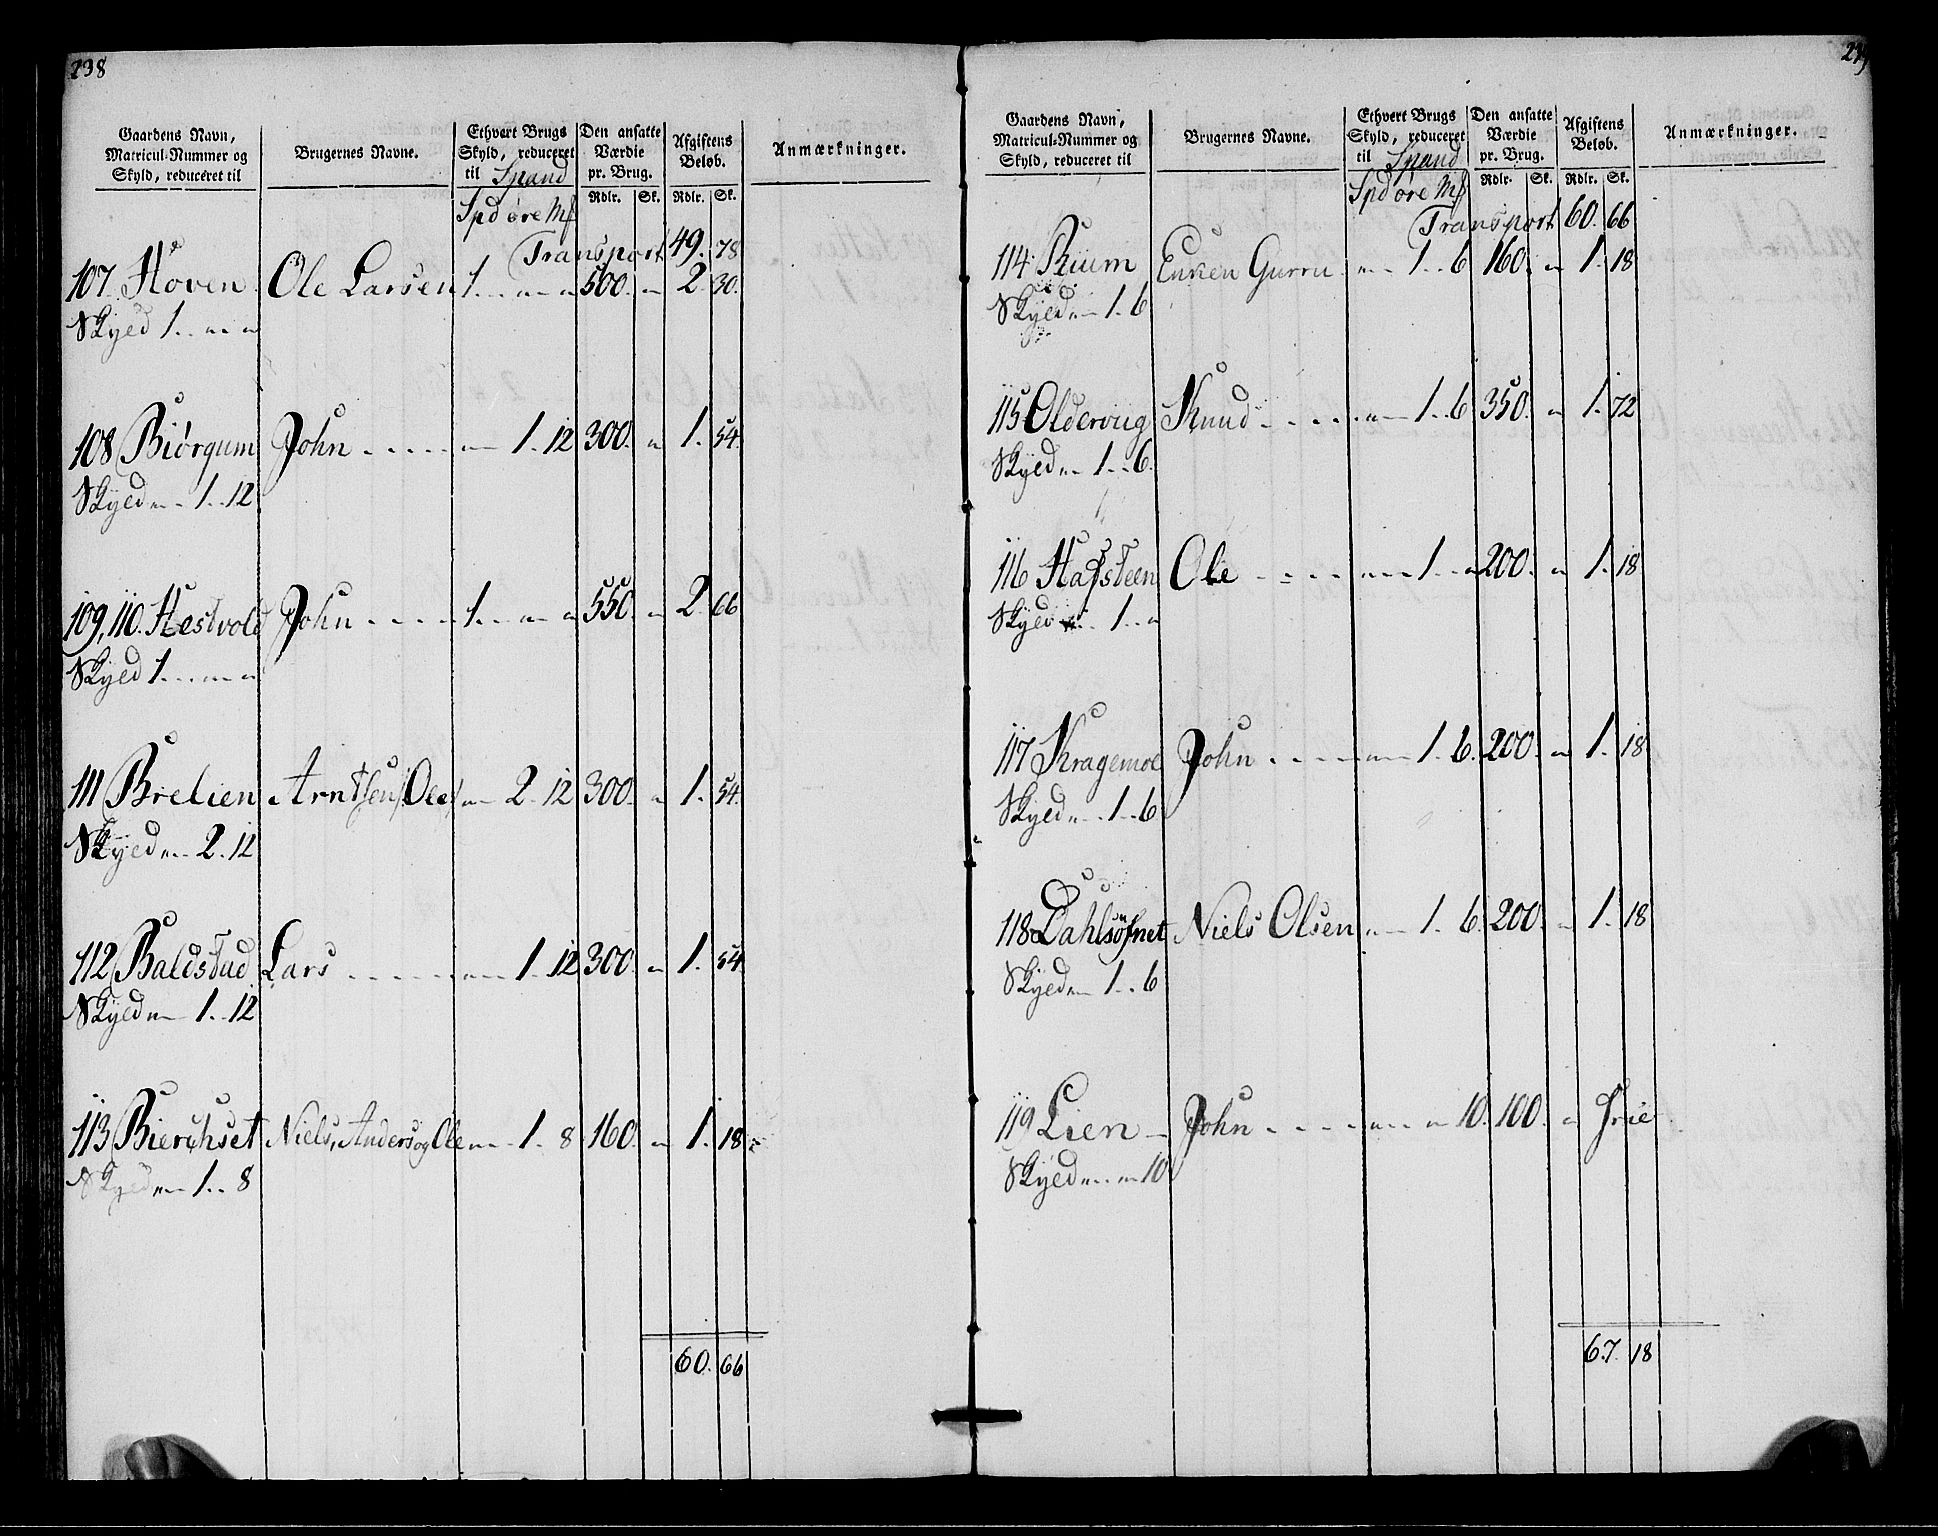 238
Gaardens Navn, Matricul-Nummer og Skyld, reduceret til
Brugernes Navne.
Ethvert Brugs Skyld, reduceret til Spand
Den ansatte Værdie pr. Brug.
Afgiftens Beløb.
Anmærkninger.
Spd øre Mf Rdlr. Sk. Rdlr. Sk.
Transport 49. 78
107 Hoven Ole Larsen 1. . . „ „ 500. „ 2. 30.
Skyld 1. . „ . „
108 Biørgum John . . . . . „ 1. 12 300. „ 1. 54.
Skyld „ . 1. . 12
109, 110. Hestvold John . . . . 1. . „ „ 550. „ 2. 66
Skyld 1. . . „ „
111 Brelien Arntsen/Ole/ „ 2. 12 300. „ 1. 54.
Skyld „ . 2. 12
112 Baldstad Lars . . . . . „ 1. 12 300. „ 1. 54
Skyld „ 1. . 12
113 Bierchset Niels, Anders og Ole „ 1. 8 160. „ 1. 18
Skyld „ 1. . 8
60. 66
Gaardens Navn, Matricul-Nummer og Skyld, reduceret til
Brugernes Navne.
Ethvert Brugs Skyld, reduceret til Spand
Den ansatte Værdie pr. Brug.
Afgiftens Beløb.
Anmærkninger.
Spd øre Mf Rdlr. Sk. Rdlr. Sk.
Transport 60. 66
114. Rium Enken Gurru „ 1. . 6 160. „ 1. 18
Skyld „ 1. 6
115 Oldervug Knud . . . . „ 1. . 6 350. „ 1. 72
Skyld „ 1. . 6.
116 Hafsteen Ole . . . . „ 1. . „ 200. „ 1. 18
Skyld „ . 1. . „
117 Kragemoe John . . . . „ 1. 6. 200. „ 1. 18
Skyld „ . 1. . 6
118 Dahlsöfnet Niels Olsen „ 1. 6. 200. „ 1. 18
Skyld „ 1. . 6
119 Lien John . . . . „ . „ 10. 100. „ Frie
Skyld „ . „ 10
67. 18